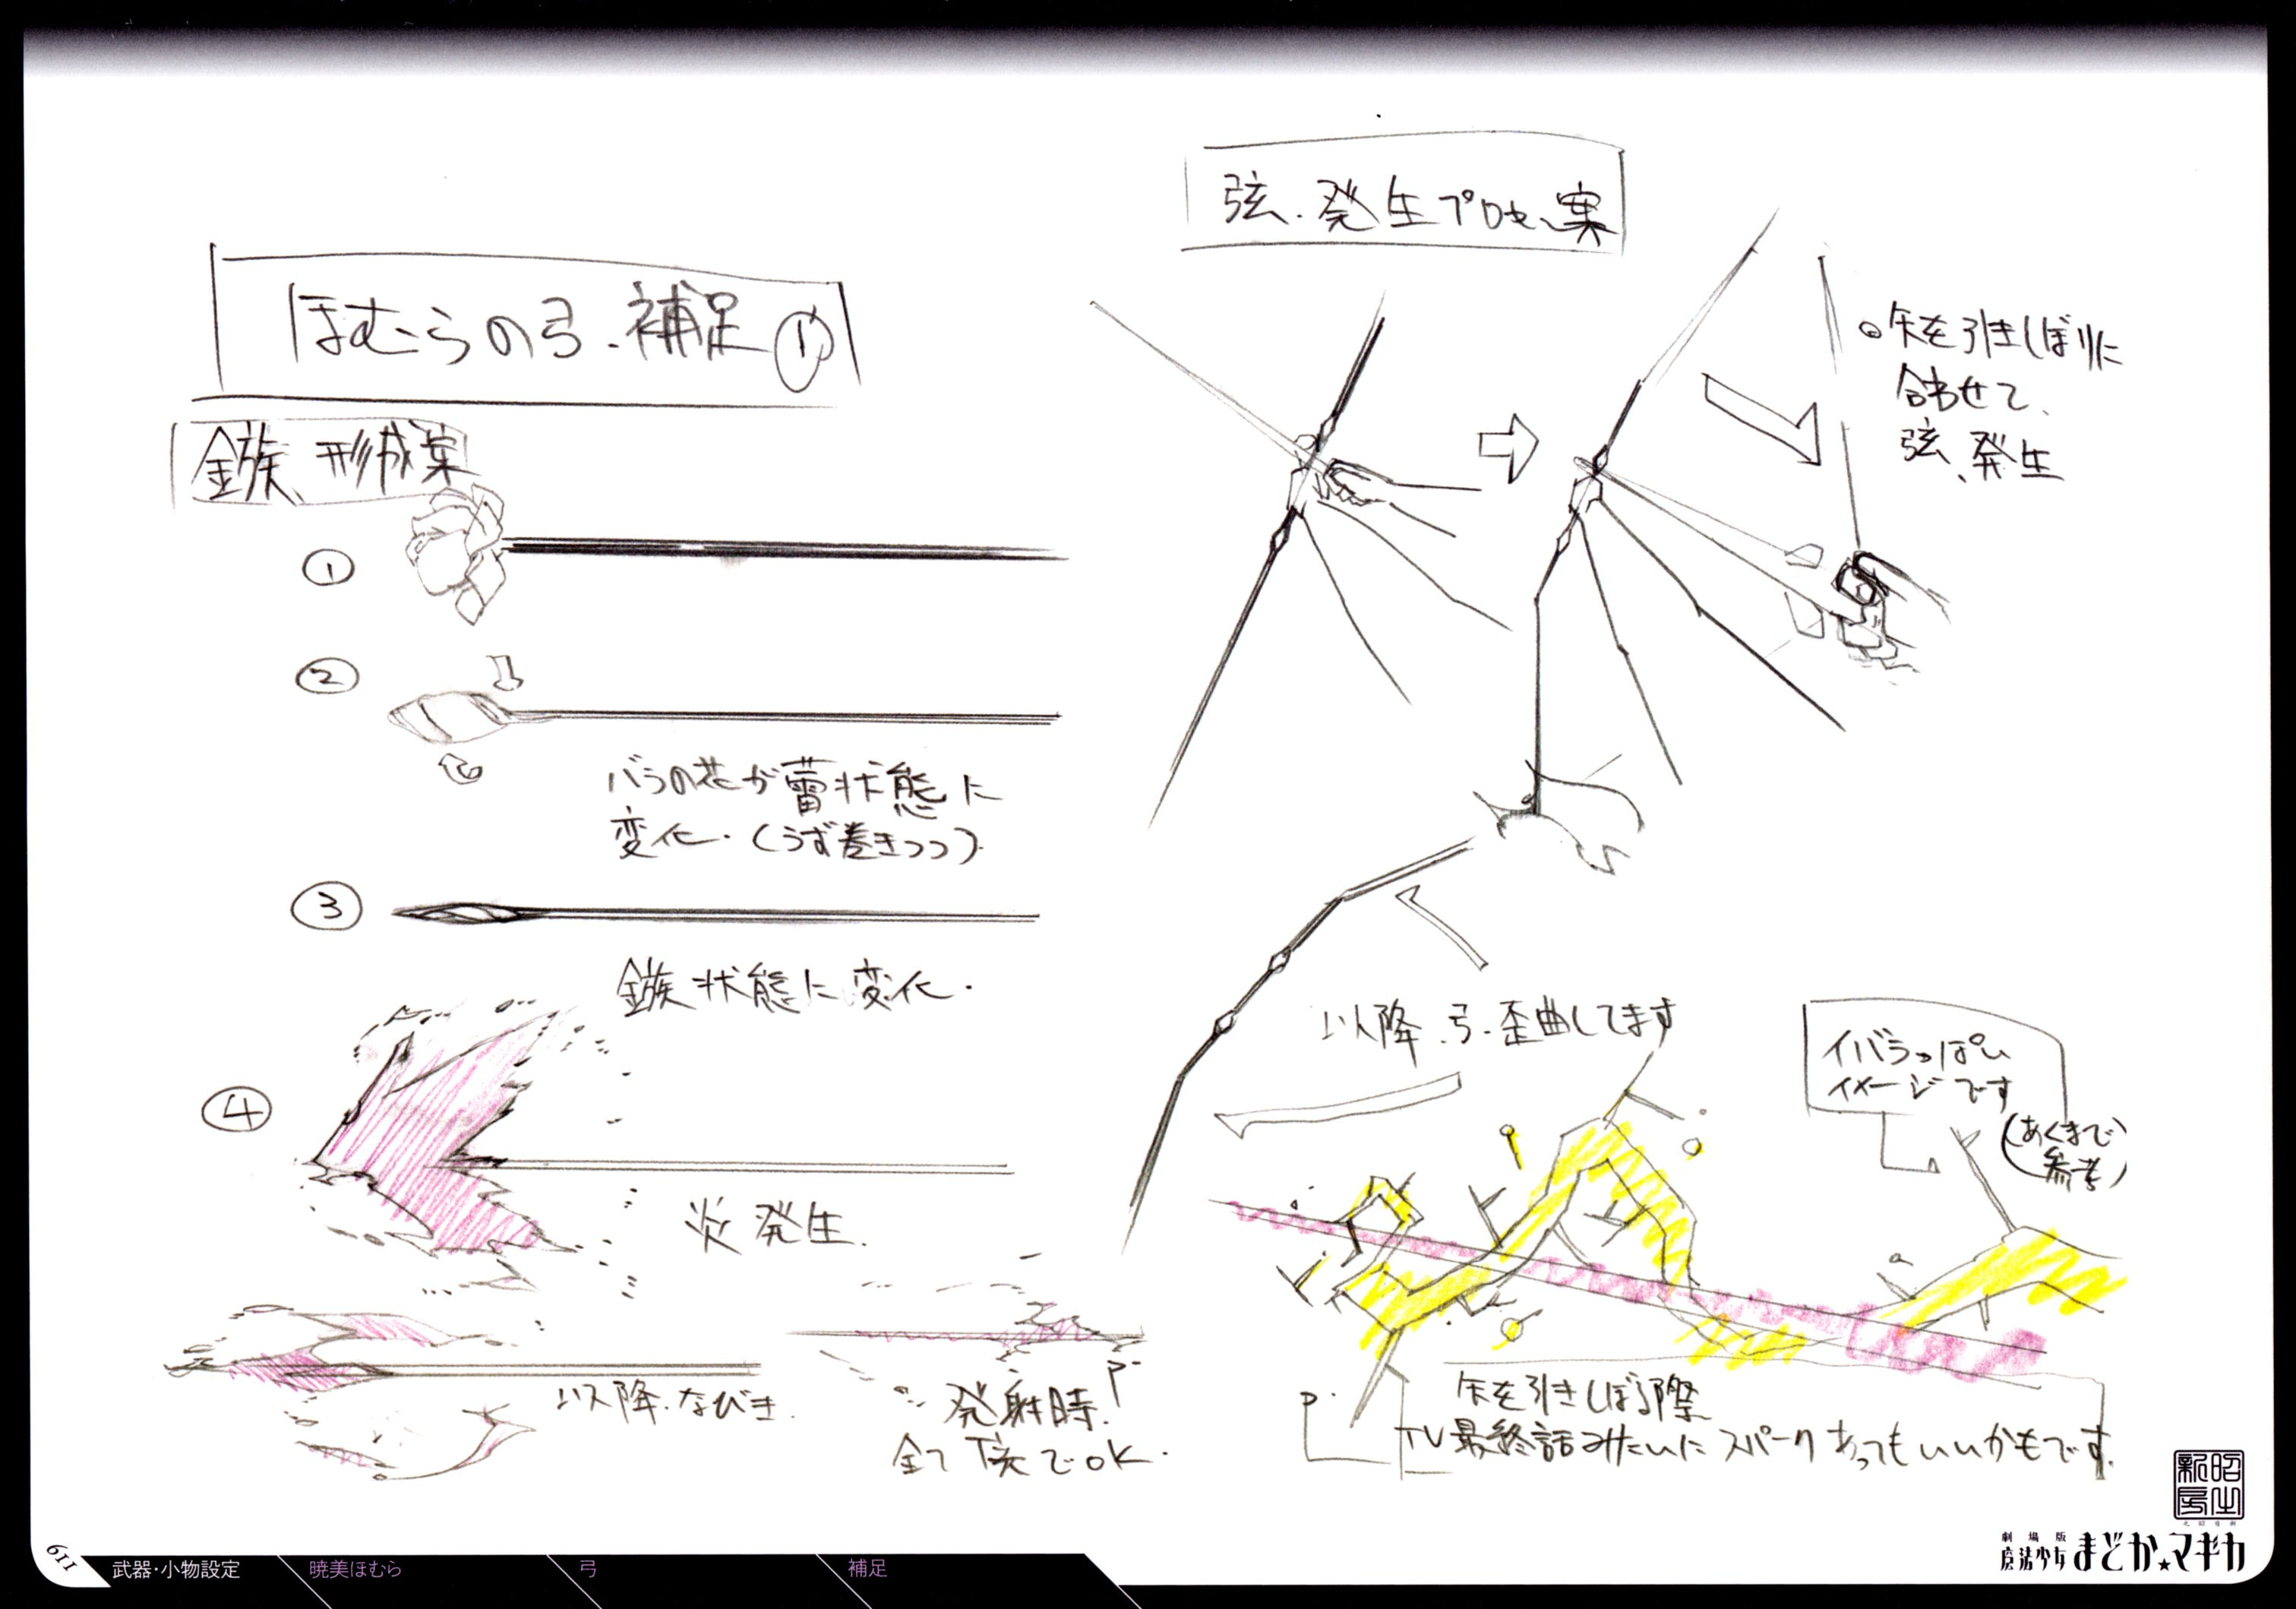 弦.発生プロセス案
ほむらの弓.補足①
鏃、形成案
①
②
バラの花が蕾状態に
変化.(うず巻きつつ).
③
鏃状態に変化.
④
炎発生.
以降.なびき.
発射時.
全てT光でOK.
P-
◎矢を引きしぼりに
合わせて、
弦、発生
以降.弓.歪曲してます
イバラっぽい
イメージです
(あくまで
参考)
P-
矢を引きしぼる際
TV最終話みたいにスパークあってもいいかもです.
119
武器・小物設定
暁美ほむら
弓
補足
新房昭之
劇場版
魔法少女まどか★マギカ